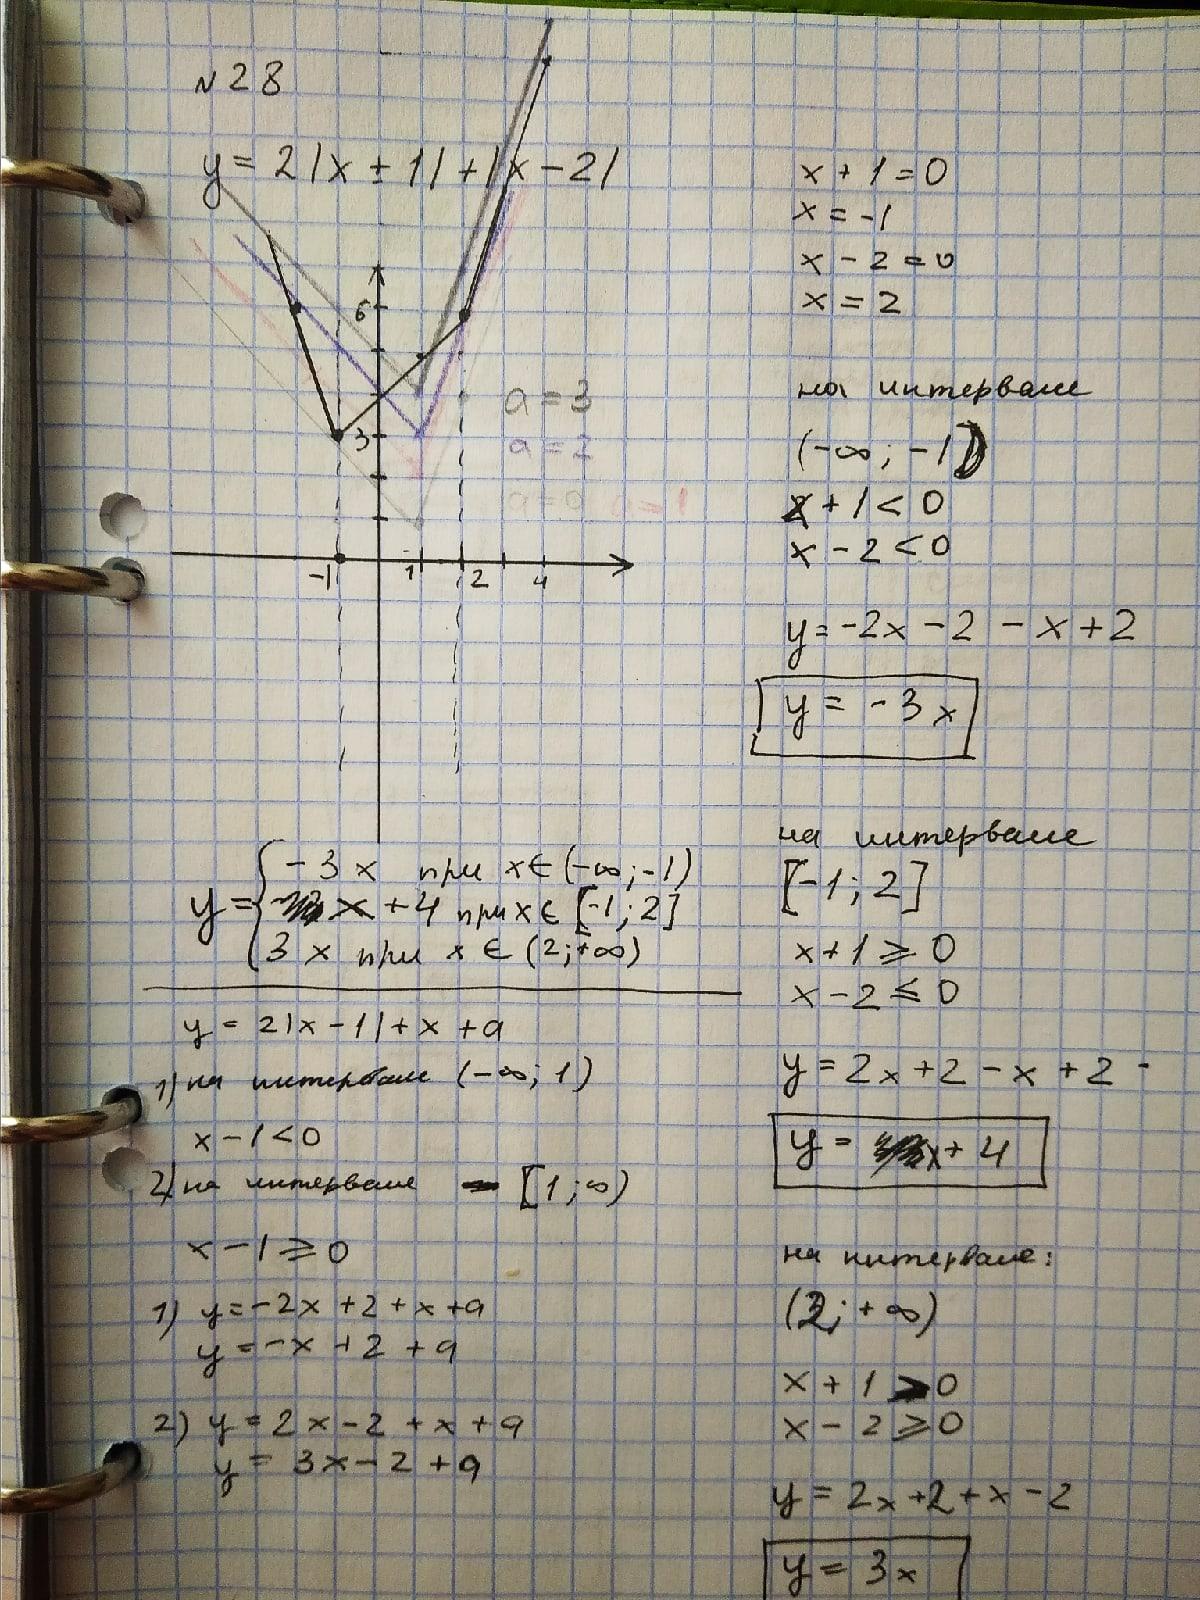 №28
y = 2|x ± 1| + |x - 2|
6
3
-1
1
2
4
a = 3
a = 2
a = 0
a = 1
y = { -3x при x ∈ (-∞; -1)
x + 4 при x ∈ [-1; 2]
3x при x ∈ (2; +∞)
y = 2|x - 1| + x + a
1) на интервале (-∞; 1)
x - 1 < 0
2) на интервале [1; ∞)
x - 1 ⩾ 0
1) y = -2x + 2 + x + a
y = -x + 2 + a
2) y = 2x - 2 + x + a
y = 3x - 2 + a
x + 1 = 0
x = -1
x - 2 = 0
x = 2
на интервале
(-∞; -1)
x + 1 < 0
x - 2 < 0
y = -2x - 2 - x + 2
y = -3x
на интервале
[-1; 2]
x + 1 ⩾ 0
x - 2 ⩽ 0
y = 2x + 2 - x + 2
y = x + 4
на интервале:
(2; +∞)
x + 1 > 0
x - 2 ⩾ 0
y = 2x + 2 + x - 2
y = 3x